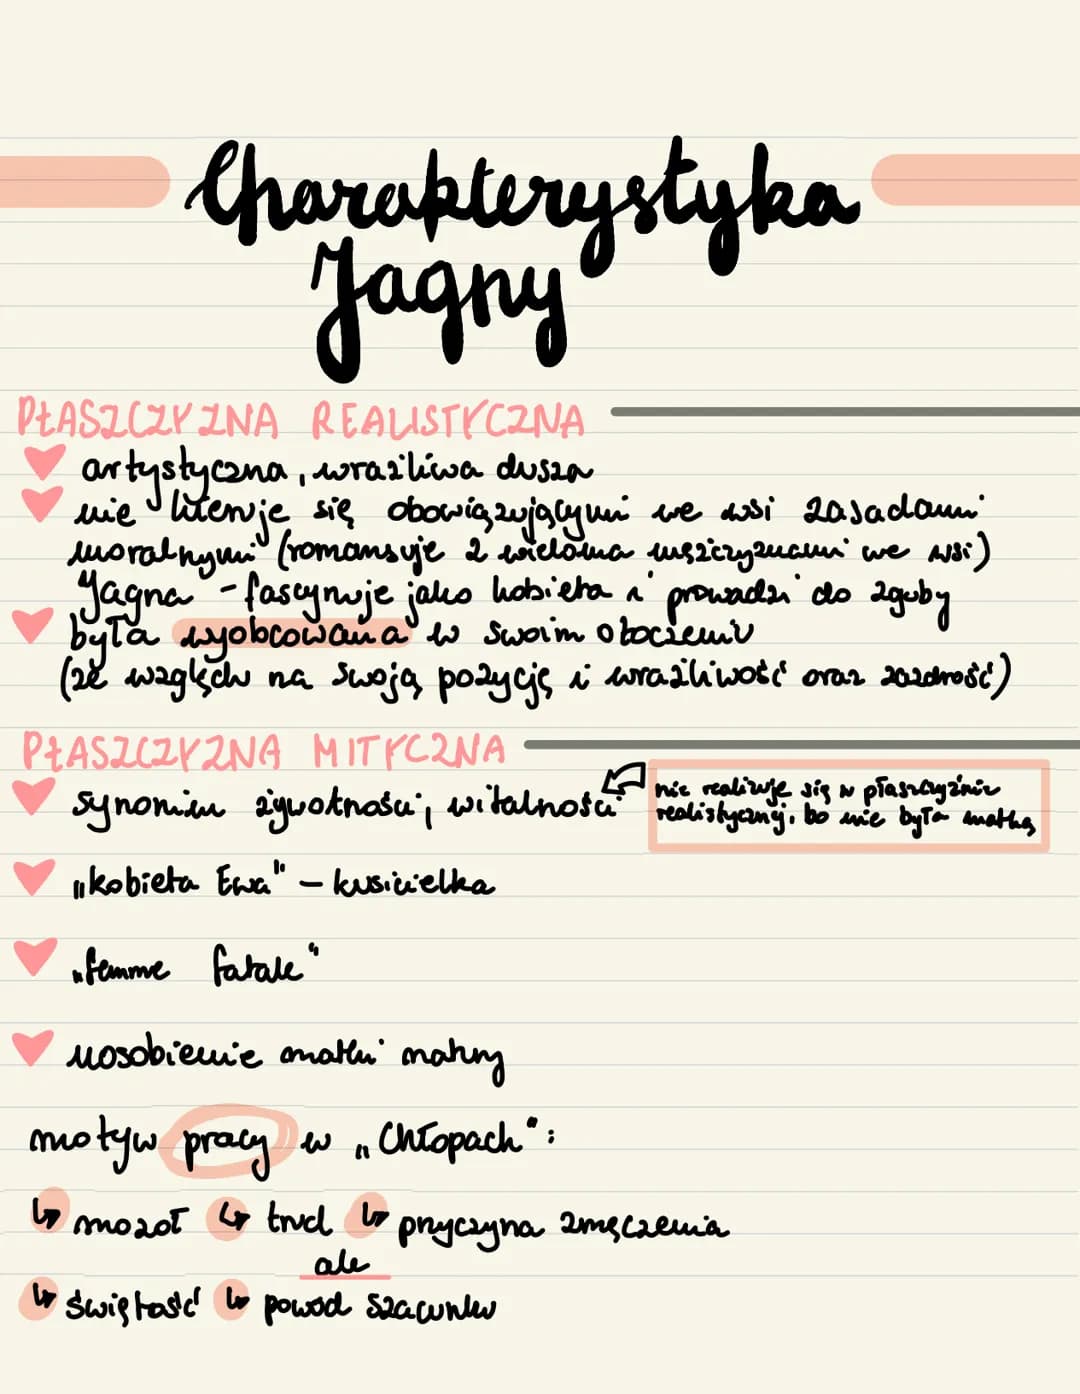 Charakterystyka
Jagny
PŁASZCZYZNA REALISTYCZNA
artystyczna, wrażliwa dusza
nie kieruje się obowiązującymi we wsi zasadami
moralnymi (romansuje z wieloma mężczyznami we wsi)
Jagna - fascynuje jako kobieta i prowadzi do zguby
była wyobcowana w swoim otoczeniu
(ze względu na swoją pozycję i wrażliwość oraz zazdrość)
PŁASZCZYZNA MITYCZNA
synonim żywotności, witalności
nie realizuje się w płaszczyźnie
realistycznej, bo nie była matką
„kobieta Ewa" - kusicielka
„femme fatale"
uosobienie matki natury
motyw pracy w „Chłopach":
↳ mozół ↳ trud ↳ przyczyna zmęczenia
ale
↳ świętość ↳ powód szacunku